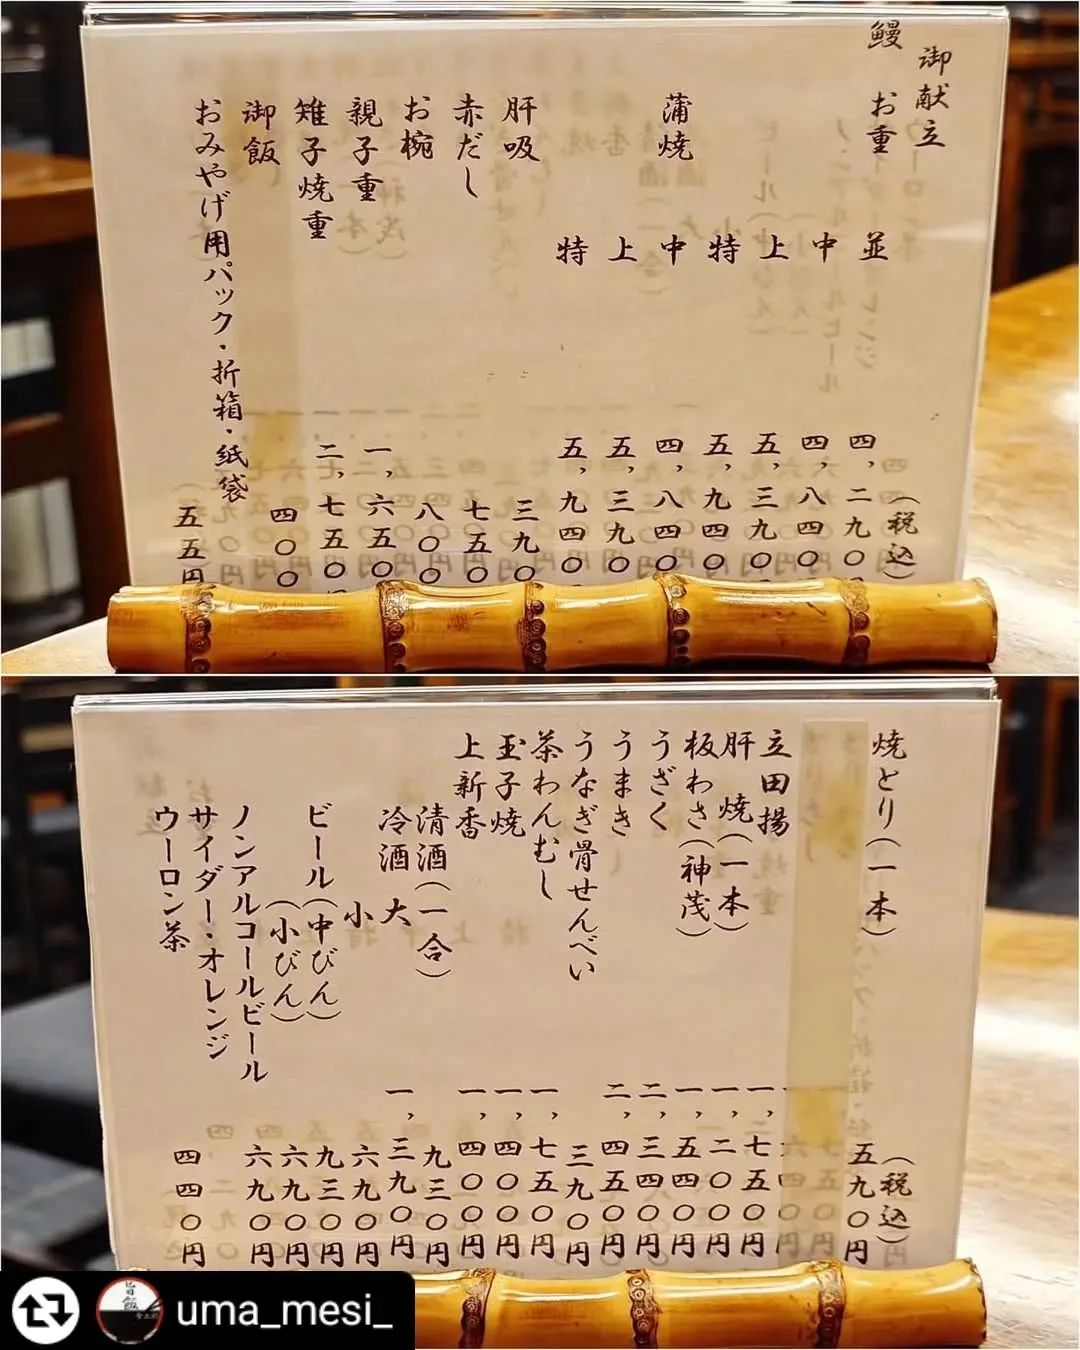 御献立 (税込)
鰻 お重 並 四,二九〇
中 四,八四〇
上 五,三九〇
特 五,九四〇
蒲焼 中 四,八四〇
上 五,三九〇
特 五,九四〇
肝吸 三九〇円
赤だし 七五〇円
お椀 八〇〇
親子重 一,六五〇円
雉子焼重 二,七五〇
御飯 四〇〇
おみやげ用パック・折箱・紙袋 五五円
(税込)
焼とり(一本) 五九〇円
立田揚 一,七五〇円
肝焼(一本) 一,二〇〇円
板わさ(神茂) 一,五四〇円
うざく 二,三四〇円
うまき 二,四五〇円
うなぎ骨せんべい 三九〇円
茶わんむし 一,七五〇円
玉子焼 一,四〇〇円
上新香 一,四〇〇円
清酒(一合) 九三〇円
冷酒 大 一,三九〇円
小 六九〇円
ビール(中びん) 九三〇円
(小びん) 六九〇円
ノンアルコールビール 六九〇円
サイダー・オレンジ
ウーロン茶 四四〇円
uma_mesi_